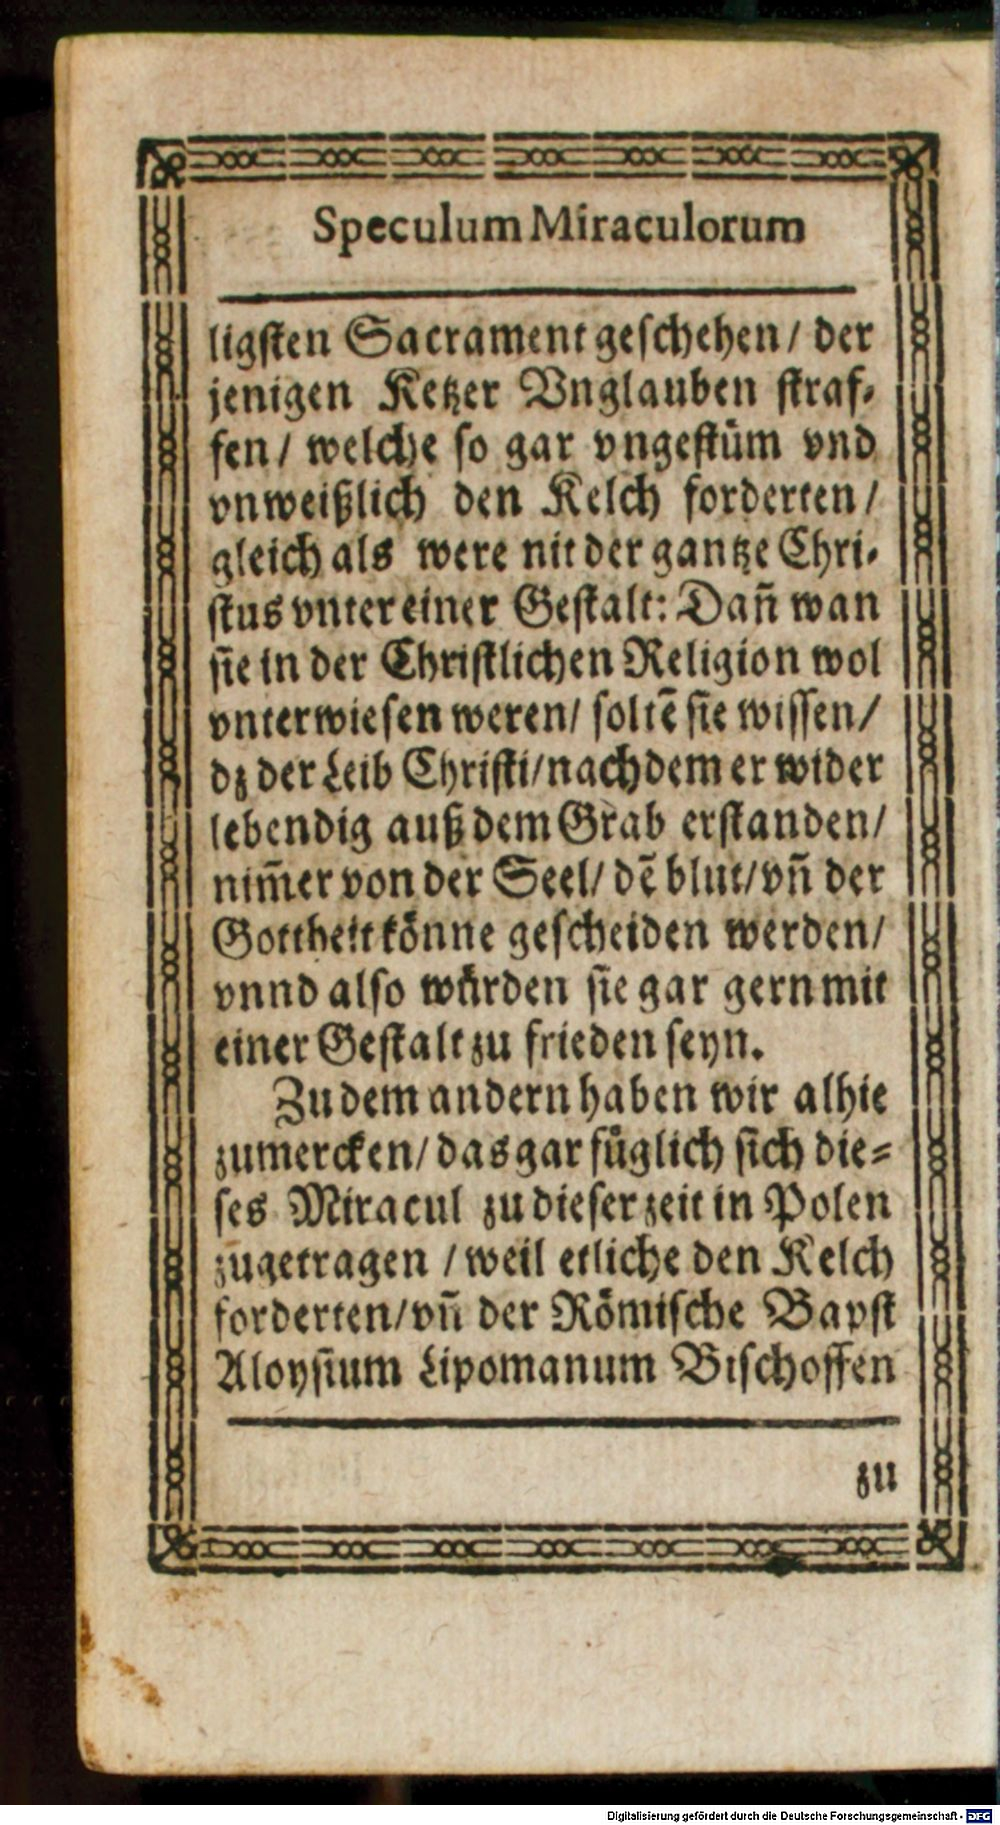 Speculum Miraculorum
ligsten Sacrament geschehen / der
jenigen Ketzer Vnglauben straf-
fen / welche so gar vngestüm vnd
vnweißlich den Kelch forderten /
gleich als were nit der gantze Chri-
stus vnter einer Gestalt: Dañ wan
sie in der Christlichen Religion wol
vnterwiesen weren / soltẽ sie wissen /
dz der Leib Christi / nachdem er wider
lebendig auß dem Grab erstanden /
nim̃er von der Seel / dẽ blut / vñ der
Gottheit könne gescheiden werden /
vnnd also wůrden sie gar gern mit
einer Gestalt zu frieden seyn.
Zu dem andern haben wir alhie
zumercken / das gar fůglich sich die=
ses Miracul zu dieser zeit in Polen
zugetragen / weil etliche den Kelch
forderten / vñ der Römische Bapst
Aloysium Lipomanum Bischoffen
zu
Digitalisierung gefördert durch die Deutsche Forschungsgemeinschaft - DFG